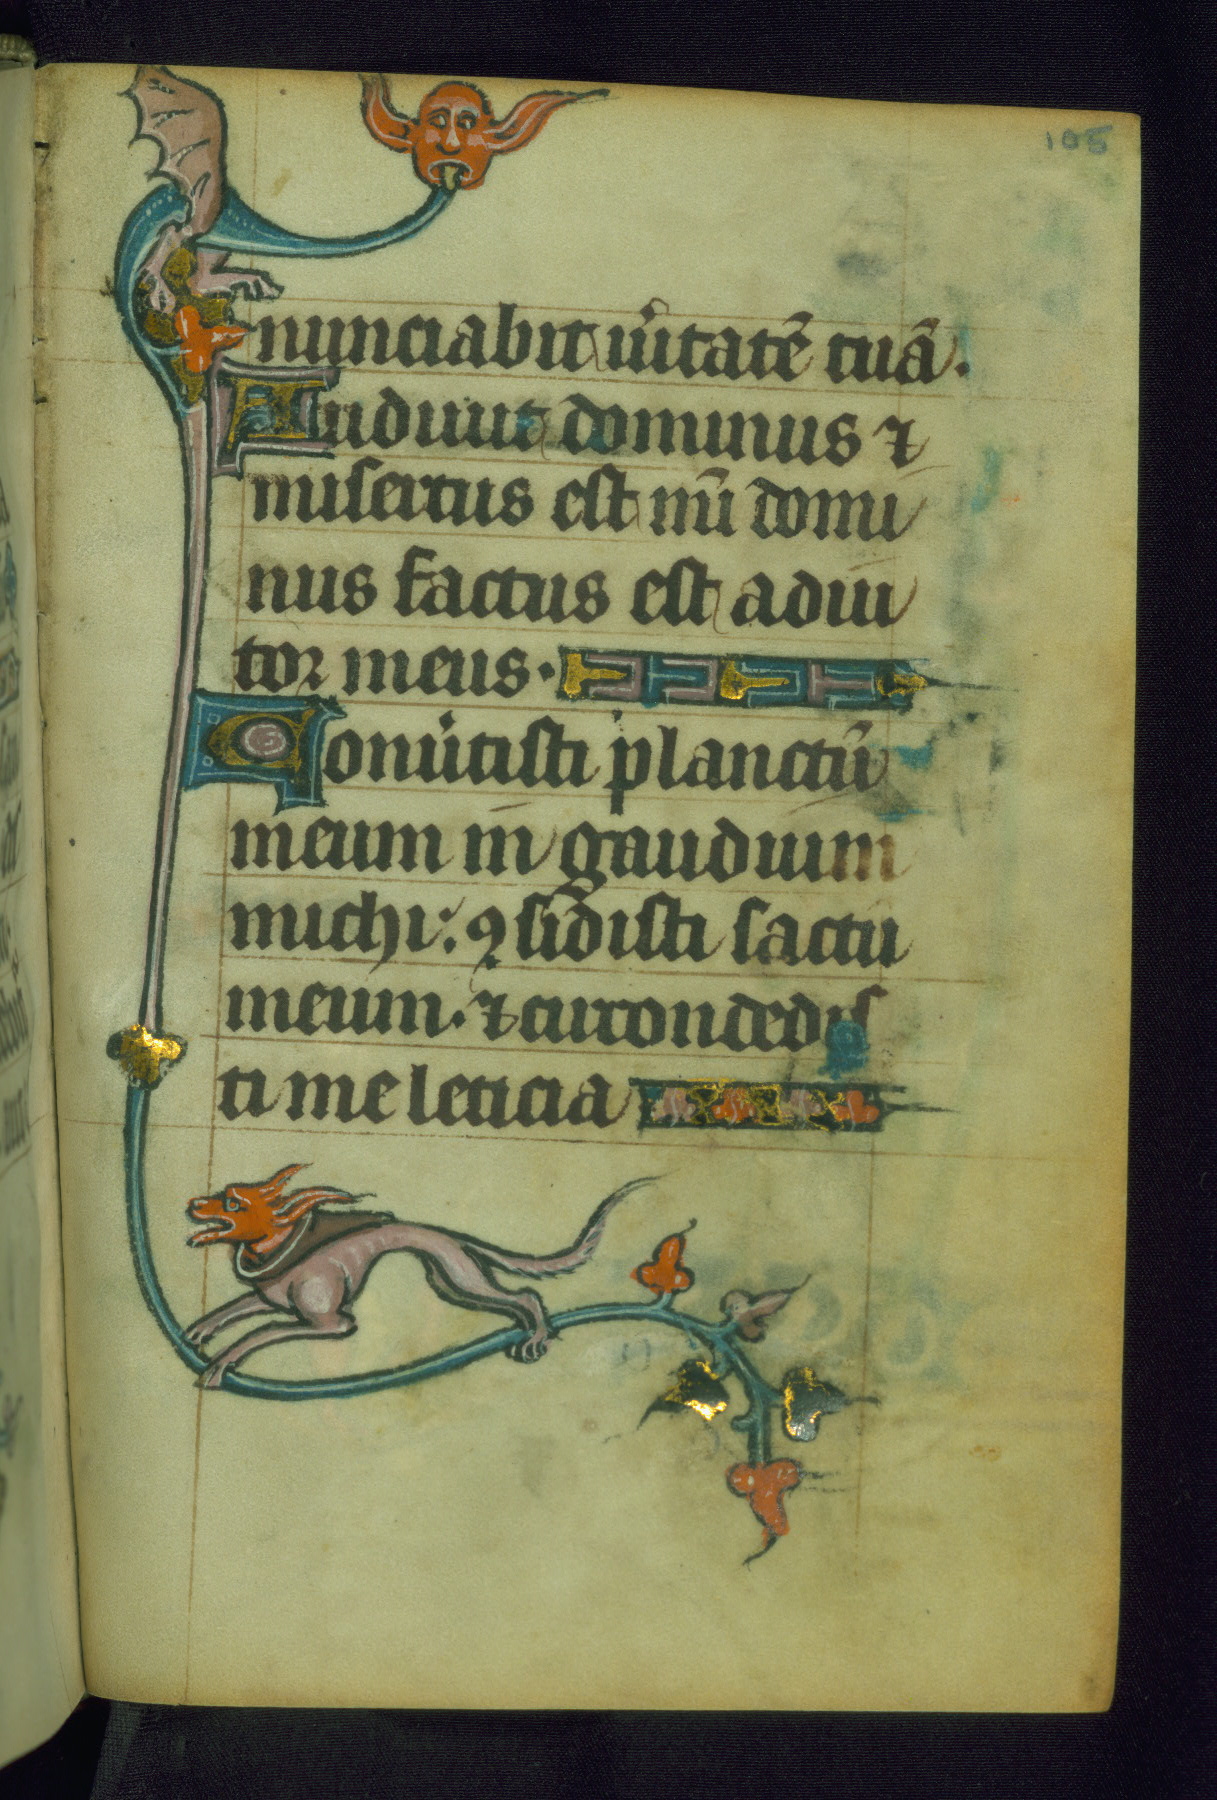 105
nunciabit ůitatē tuā.
Audiuit dominus ⁊
misertus est m̄i domi
nus factus est adiu
tor meus.
Conůtisti planctū
meum in gaudium
michi: ꝯsīdisti sactū
meum. ⁊ circondedis
ti me leticia